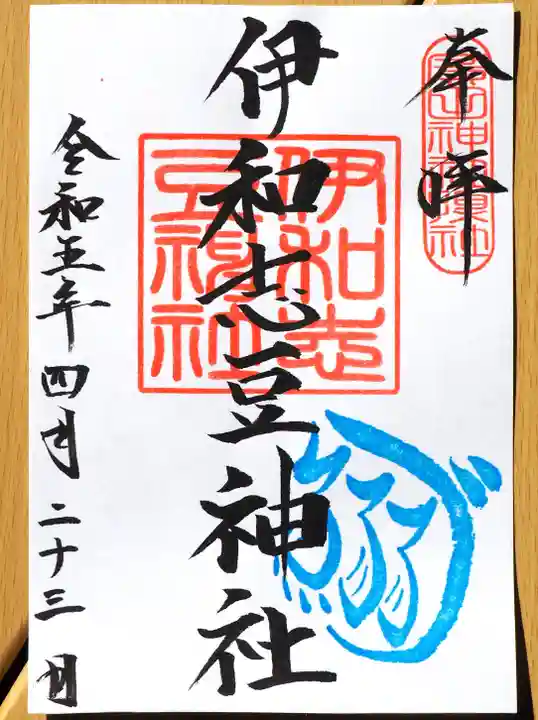 奉拝
伊和志豆神社
伊和志
豆神社
令和五年四月二十三日